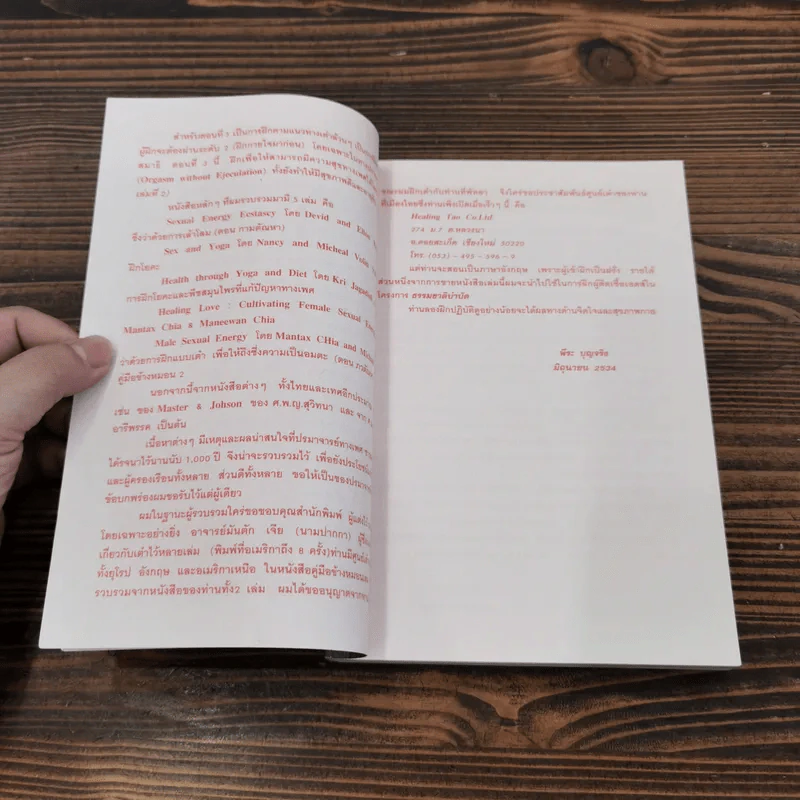 สำหรับตอนที่ 3 เป็นการฝึกตามแนวทางเต๋าล้วนๆ
ผู้ฝึกจะต้องผ่านระดับ 2 (ฝึกกายโซมาก่อน) โดยเฉพาะใน
สมาธิ ตอนที่ 3 นี้ ฝึกเพื่อให้สามารถมีความสุขทางเพศ
(Orgasm without Ejeculation) ทั้งยังทำให้มีสุขภาพดี
เล่มที่ 2)
หนังสือหลักๆ ที่ผมรวบรวมมามี 5 เล่ม คือ
Sexual Energy Ecstascy โดย Devid and Ellen
ซึ่งว่าด้วยการเล้าโลม (ตอน กามตัณหา)
Sex and Yoga โดย Nancy and Micheal
ฝึกโยคะ
Health through Yoga and Diet โดย Kri
การฝึกโยคะและพืชสมุนไพรที่แก้ปัญหาทางเพศ
Healing Love : Cultivating Female Sexual
Mantax Chia & Maneewan Chia
Male Sexual Energy โดย Mantax CHia and
ว่าด้วยการฝึกแบบเต๋า เพื่อให้ถึงซึ่งความเป็นอมตะ (ตอน
คู่มือข้างหมอน 2
นอกจากนี้จากหนังสือต่างๆ ทั้งไทยและเทศอีก
เช่น ของ Master & Johson ของ ศ.พ.ญ.สุวัทนา และ จาก
อารีพรรค เป็นต้น
เนื้อหาต่างๆ มีเหตุและผลน่าสนใจที่ปรมาจารย์ทางเพศ
ได้รจนาไว้นานนับ 1,000 ปี จึงน่าจะรวบรวมไว้ เพื่อยังประโยชน์
และผู้ครองเรือนทั้งหลาย ส่วนดีทั้งหลาย ขอให้เป็นของ
ข้อบกพร่องผมขอรับไว้แต่ผู้เดียว
ผมในฐานะผู้รวบรวมใคร่ขอขอบคุณสำนักพิมพ์
โดยเฉพาะอย่างยิ่ง อาจารย์มันตัก เจีย (นามปากกา)
เกี่ยวกับเต๋าไว้หลายเล่ม (พิมพ์ที่อเมริกาถึง 8 ครั้ง)ท่านมีศูนย์
ทั้งยุโรป อังกฤษ และอเมริกาเหนือ ในหนังสือคู่มือข้างหมอน
รวบรวมจากหนังสือของท่านทั้ง2 เล่ม ผมได้ขออนุญาตจาก
ขณะผมฝึกเต๋ากับท่านที่พัทยา จึงใคร่ขอประชาสัมพันธ์ศูนย์เต๋าของท่าน
ที่เมืองไทยซึ่งท่านเพิ่งเปิดเมื่อเร็วๆ นี้ คือ
Healing Tao Co.Ltd
274 ม.7 ต.หลวงนา
อ.ดอยสะเก็ด เชียงใหม่ 50220
โทร. (053) - 495 - 596 - 9
แต่ท่านจะสอนเป็นภาษาอังกฤษ เพราะผู้เข้าฝึกเป็นฝรั่ง รายได้
ส่วนหนึ่งจากการขายหนังสือเล่มนี้ผมจะนำไปใช้ในการฝึกผู้ติดเชื้อเอดส์ใน
โครงการ ธรรมชาติบำบัด
ท่านลองฝึกปฏิบัติดูอย่างน้อยจะได้ผลทางด้านจิตใจและสุขภาพกาย
พีระ บุญจริง
มิถุนายน 2534